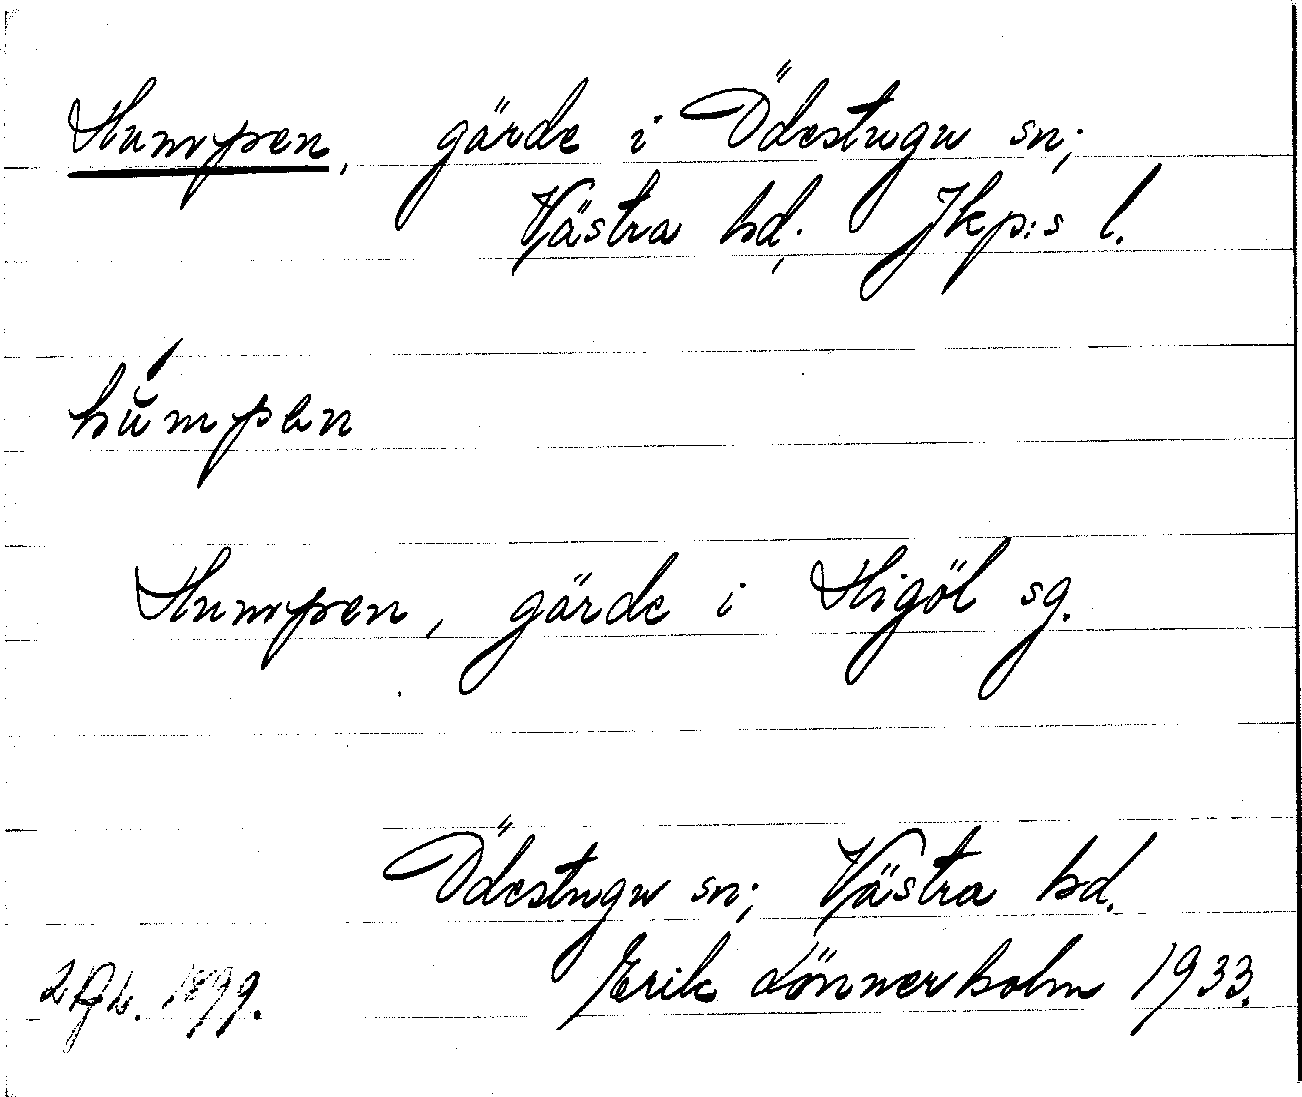 Humpen, gärde i Ödestugu sn;
Västra hd. Jkp:s l.
hŭ́mpen
Humpen, gärde i Higöl sg.
Ödestugu sn; Västra hd.
Erik Lönnerholm 1933.
1899.